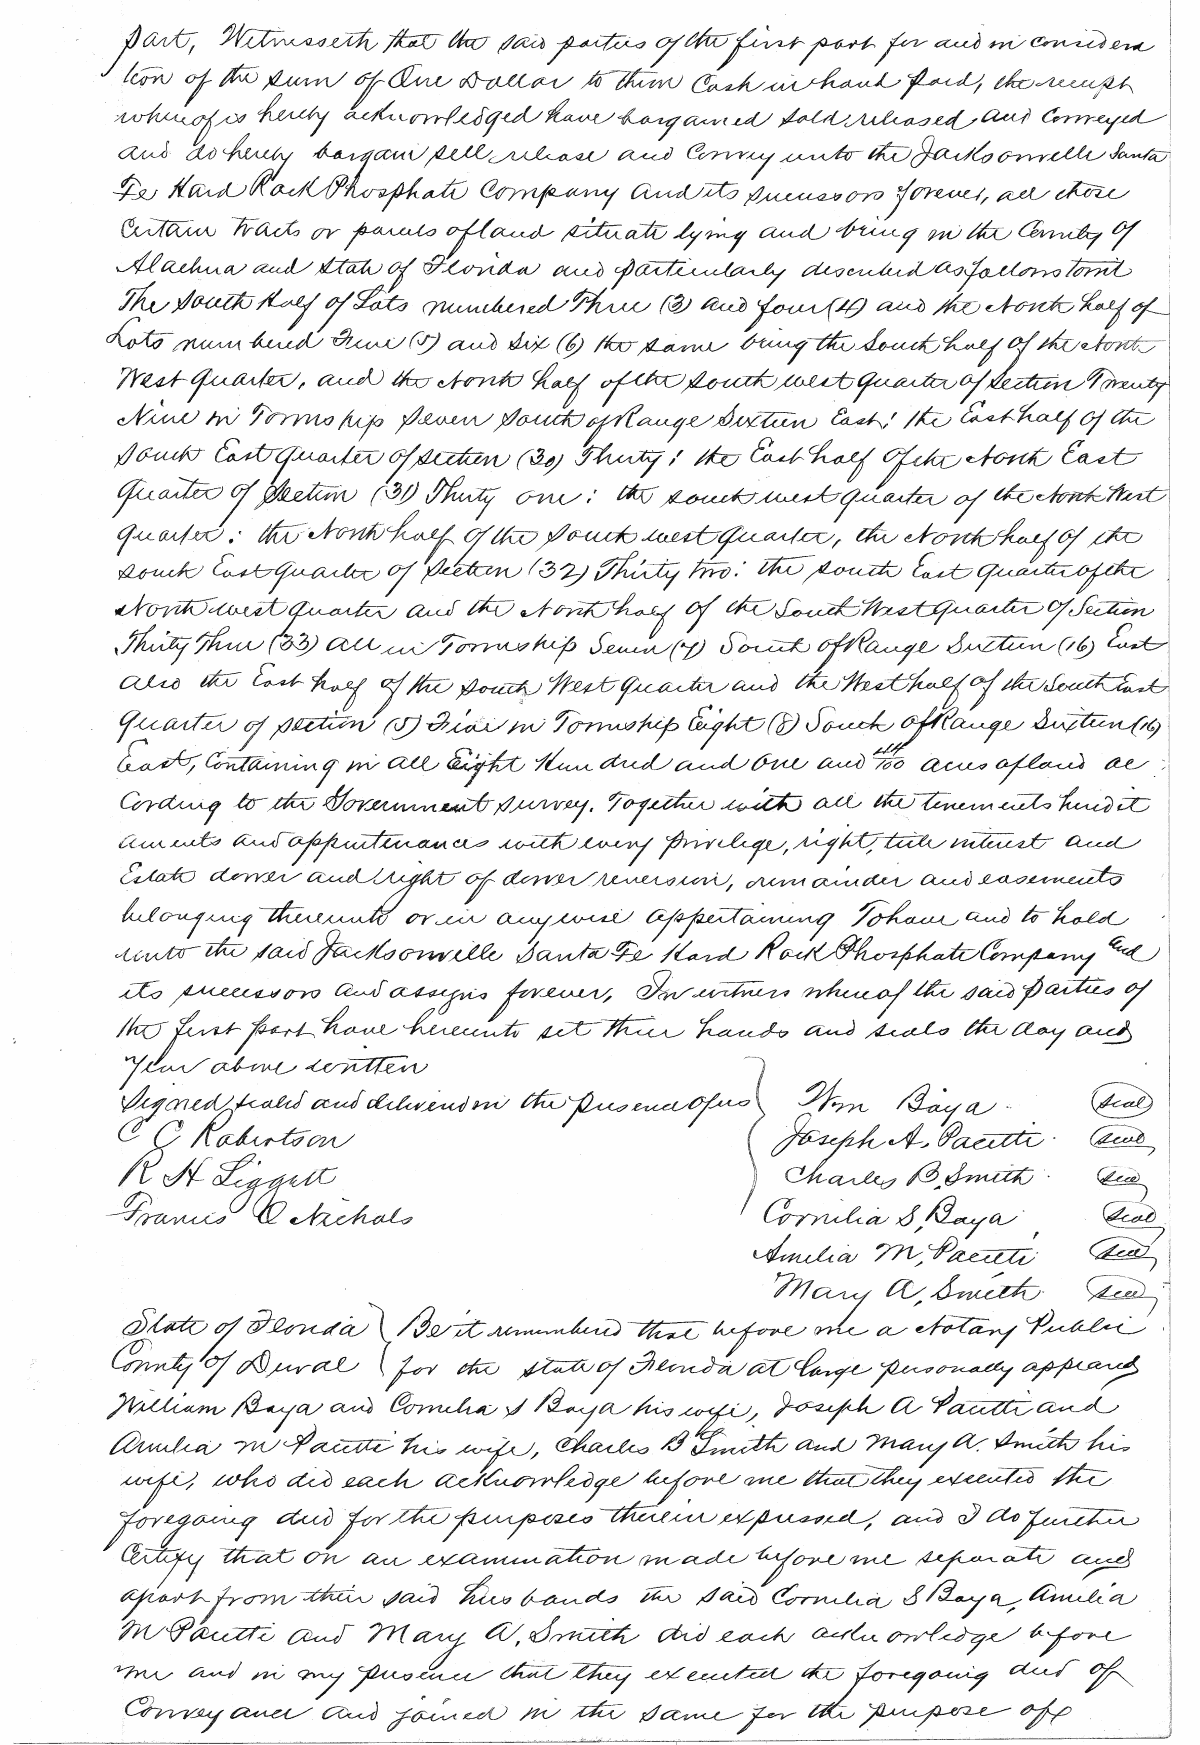 part, Witnesseth that the said parties of the first part for and in considera
tion of the sum of One Dollar to them Cash in hand paid, the receipt
whereof is hereby acknowledged have bargained sold released and Conveyed
and do hereby bargain sell release and Convey unto the Jacksonville Santa
Fe Hard Rock Phosphate Company and its successors forever, all those
Certain tracts or parcels of land situate lying and being in the County of
Alachua and State of Florida and particularly described as follows towit
The South Half of Lots numbered Three (3) and four (4) and the North half of
Lots numbered Five (5) and Six (6) the same being the South half of the North
West Quarter, and the North half of the South west Quarter of Section Twenty
Nine in Township Seven South of Range Sixteen East; the East half of the
South East Quarter of Section (30) Thirty; the East half of the North East
Quarter of Section (31) Thirty one; the south west quarter of the North West
quarter; the North half of the South west Quarter, the North half of the
South East Quarter of Section (32) Thirty two; the South East Quarter of the
North west Quarter and the North half of the South West Quarter of Section
Thirty Three (33) all in Township Seven (7) South of Range Sixteen (16) East
also the East half of the South West Quarter and the West half of the South East
Quarter of Section (5) Five in Township Eight (8) South of Range Sixteen (16)
East, Containing in all Eight Hundred and One and /100 acres of land ac
Cording to the Government survey. Together with all the tenements heredit
aments and appurtenances with every privilege, right, title interest and
Estate dower and right of dower reversion, remainder and easements
belonging thereunto or in anywise appertaining To have and to hold
unto the said Jacksonville Santa Fe Hard Rock Phosphate Company and
its successors and assigns forever, In witness whereof the said parties of
the first part have hereunto set their hands and seals the day and
Year above written
Signed sealed and delivered in the presence of us Wm Baya seal
C C Robertson Joseph A. Pacetti seal
R H Liggett Charles B. Smith seal
Francis C Nichols Cornelia S. Baya seal
Amelia M. Pacetti seal
Mary A. Smith seal
State of Florida Be it remembered that before me a Notary Public
County of Duval for the state of Florida at large personally appeared
William Baya and Cornelia S Baya his wife, Joseph A Pacetti and
Amelia M Pacetti his wife, Charles B Smith and Mary A. Smith his
wife, who did each acknowledge before me that they executed the
foregoing deed for the purposes therein expressed, and I do further
Certify that on an examination made before me separate and
apart from their said husbands the said Cornelia S Baya, Amelia
M Pacetti and Mary A. Smith did each acknowledge before
me and in my presence that they executed the foregoing deed of
Conveyance and joined in the same for the purpose of